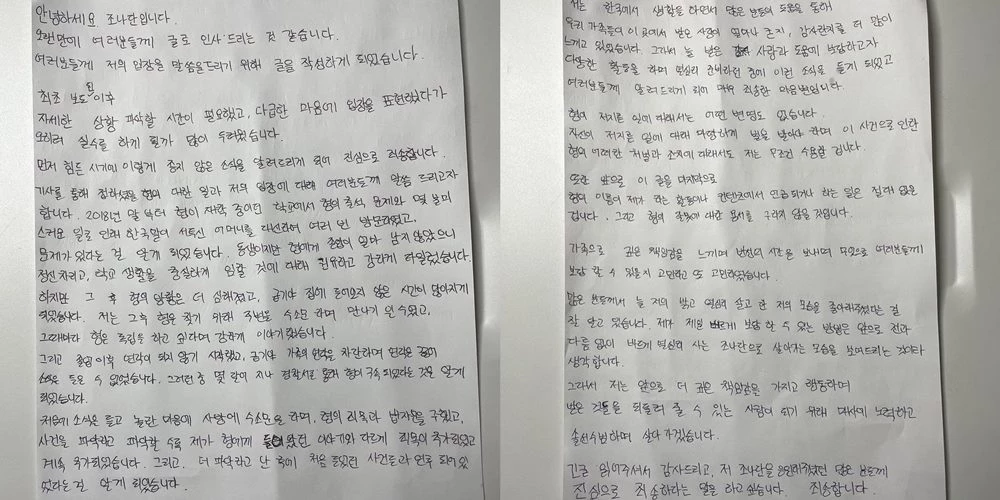 안녕하세요. 조나단입니다.
오랜만에 여러분들께 글로 인사드리는 것 같습니다.
여러분들께 저의 입장을 말씀을드리기 위해 글을 작성하게 되었습니다.
최초 보도된 이후
자세한 상황 파악할 시간이 필요했고, 다급한 마음에 입장을 표현하였다가
오히려 실수를 하게 될까 많이 두려웠습니다.
먼저 힘든 시기에 이렇게 좋지 않은 소식을 알려드리게 되어 진심으로 죄송합니다.
기사를 통해 접하셨을 형에 대한 일과 저의 입장에 대해 여러분들께 말씀 드리고자
합니다. 2018년 말 부터 형이 재학 중이던 학교에서 형의 출석 문제와 몇 불미
스러운 일로 인해 한국말이 서툴신 어머니를 대신하여 여러 번 방문하였고,
문제가 있다는 걸 알게 되었습니다. 동생이지만 형에게 졸업이 얼마 남지 않았으니
정신 차리고, 학교 생활을 충실하게 임할 것에 대해 권유하고 강하게 타일렀습니다.
하지만 그 후 형의 방황은 더 심해졌고, 급기야 집에 들어오지 않은 시간이 많아지게
되었습니다. 저는 그 후 형을 찾기 위해 주변을 수소문 하며 만나기 일쑤였고,
그때마다 형은 독립을 하고 싶다며 강하게 이야기 했습니다.
그리고 졸업 이후 연락이 되지 않기 시작했고, 급기야 가족의 연락을 차단하며 연락은
소식을 들을 수 없었습니다. 그러던 중 몇 달이 지나 경찰서를 통해 형이 구속 되었다는 것을 알게
되었습니다.
처음에 소식을 듣고 놀란 마음에 사방에 수소문을 하며, 형의 죄목과 법자문을 구했고,
사건을 파악하고 파악할 수록 제가 형에게 들어왔던 이야기와 다르게 죄목이 추가되었고
계속 추가되었습니다. 그리고, 더 파악하고 난 후에 처음 들었던 사건들과 연루 되어 있
었다는 걸 알게 되었습니다.
저는 한국에서 생활을 하면서 많은 분들의 도움을 통해
우리 가족들이 이 곳에서 받은 사랑이 얼마나 큰지, 감사한지를 더 많이
느끼고 있었습니다. 그래서 늘 받은 사랑과 도움에 보답하고자
다양한 활동을 하며 열심히 준비하던 중에 이런 소식을 듣게 되었고
여러분들께 알려드리게 되어 매우 죄송한 마음뿐입니다.
형이 저지른 일에 대해서는 어떤 변명도 없습니다.
자신이 저지른 일에 대해 마땅하게 벌을 받아야 하며 이 사건으로 인한
형의 어떠한 처벌과 조치에 대해서도 저는 무조건 수용할 겁니다.
또한 앞으로 이 글을 마지막으로
형의 이름이 제가 하는 활동이나 컨텐츠에서 언급 되거나 하는 일은 절대 없을
겁니다. 그리고 형의 잘못에 대한 용서를 구하지 않을 것입니다.
가족으로 깊은 책임감을 느끼며 번민의 시간을 보내며 무엇으로 여러분들께
보답 할 수 있을지 고민하고 또 고민하였습니다.
많은 분들께서 늘 저의 밝고 열심히 살고 한 저의 모습을 좋아해주셨다는 걸
잘 알고 있습니다. 제가 제일 빠르게 보답 할 수 있는 방법은 앞으로 전과
다름 없이 바르게 열심히 사는 조나단으로 살아가는 모습을 보여드리는 것이라
생각합니다.
그래서 저는 앞으로 더 깊은 책임감을 가지고 행동하며
받은 것들을 되돌려 줄 수 있는 사람이 되기 위해 더 열심히 노력하고
솔선수범하며 살아가겠습니다.
긴글 읽어주셔서 감사드리고, 저 조나단을 응원해주셨던 많은 분들께
진심으로 죄송하다는 말을 하고싶습니다. 죄송합니다.